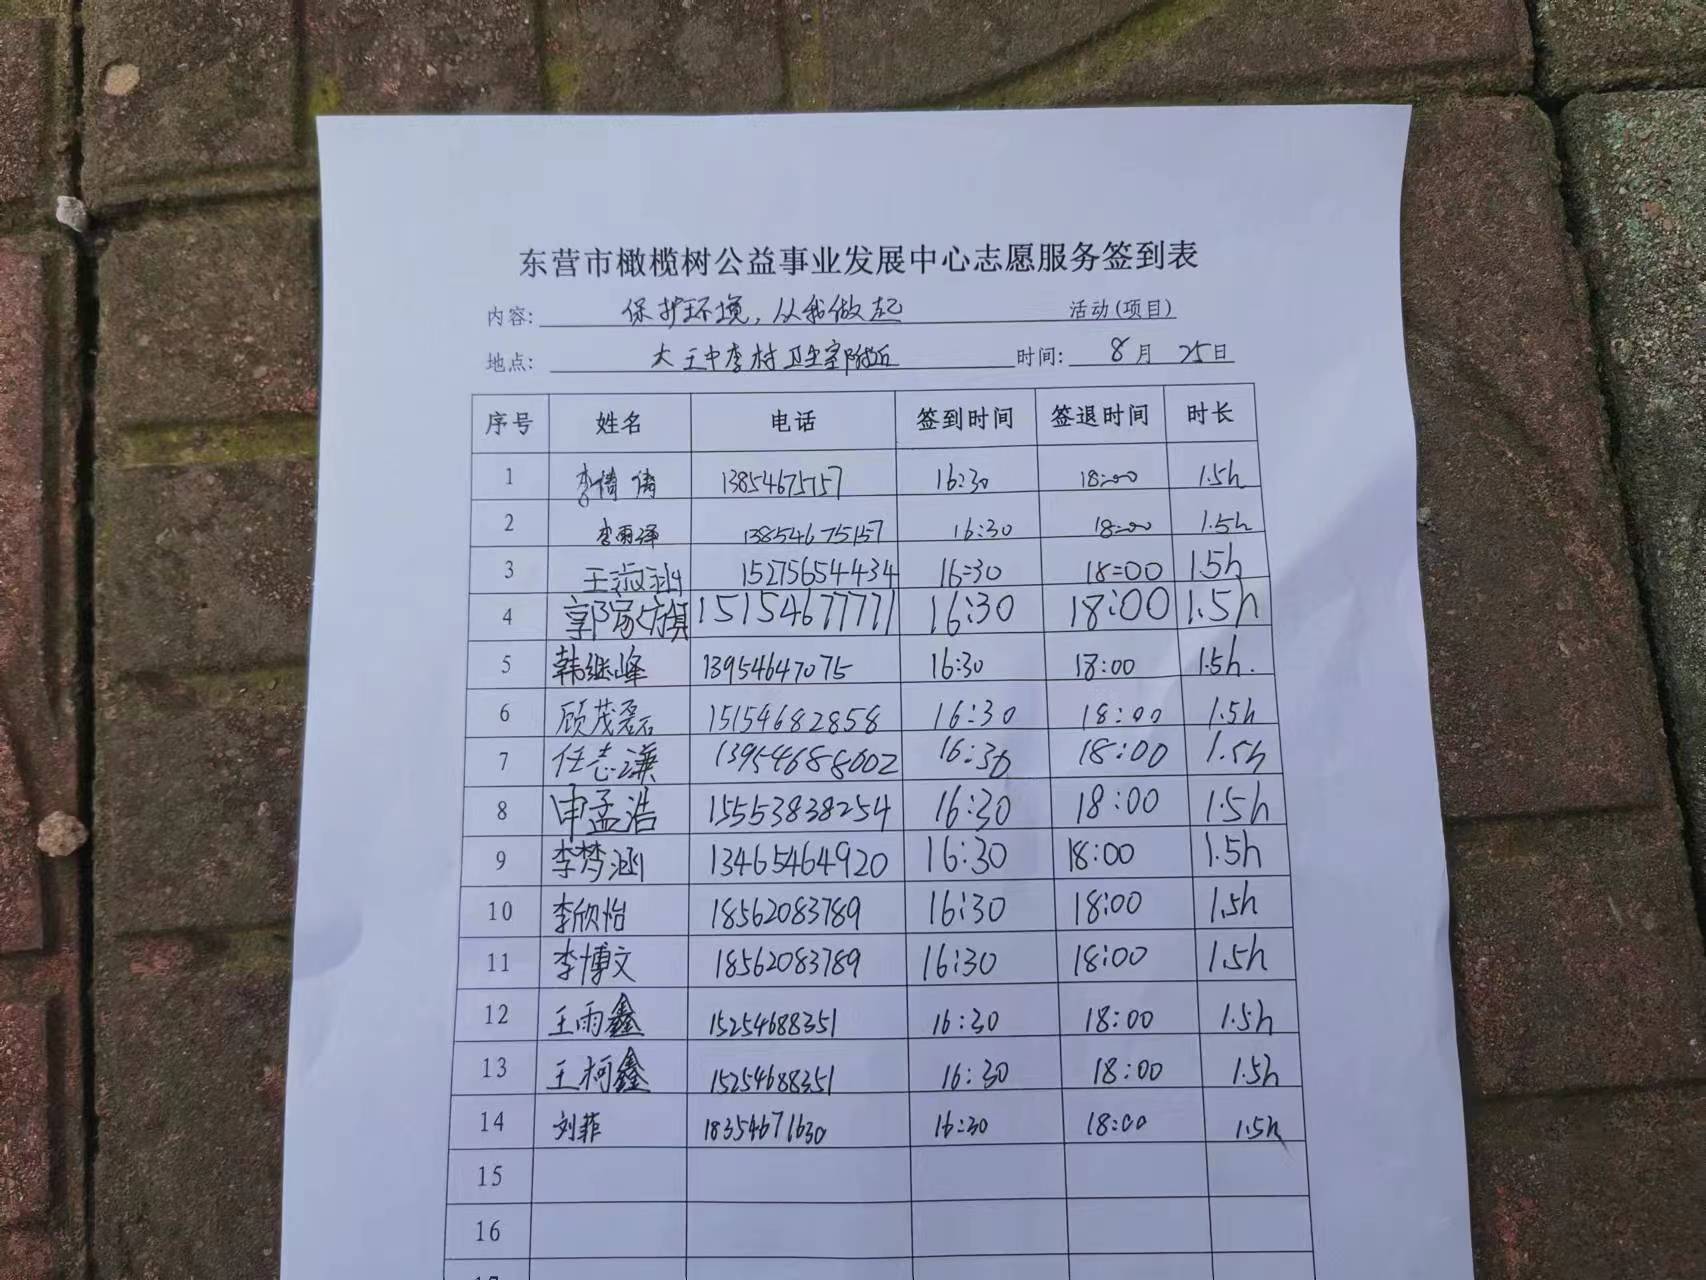 东营市橄榄树公益事业发展中心志愿服务签到表
内容: 保护环境,从我做起 活动(项目)
地点: 大王中李村卫生室附近 时间: 8月 25日
序号 姓名 电话 签到时间 签退时间 时长
1 李倩倩 13854675757 16:30 18:00 1.5h
2 李雨泽 13854675157 16:30 18:00 1.5h
3 王淑涵 15275654434 16:30 18:00 1.5h
4 郭家旗 15154677771 16:30 18:00 1.5h
5 韩继峰 13954647075 16:30 18:00 1.5h.
6 顾茂磊 15154682858 16:30 18:00 1.5h
7 任志谦 13954688002 16:30 18:00 1.5h
8 申孟浩 15553838254 16:30 18:00 1.5h
9 李梦涵 13465464920 16:30 18:00 1.5h
10 李欣怡 18562083789 16:30 18:00 1.5h
11 李博文 18562083789 16:30 18:00 1.5h
12 王雨鑫 15254688351 16:30 18:00 1.5h
13 王柯鑫 15254688351 16:30 18:00 1.5h
14 刘菲 18354671630 16:30 18:00 1.5h
15
16